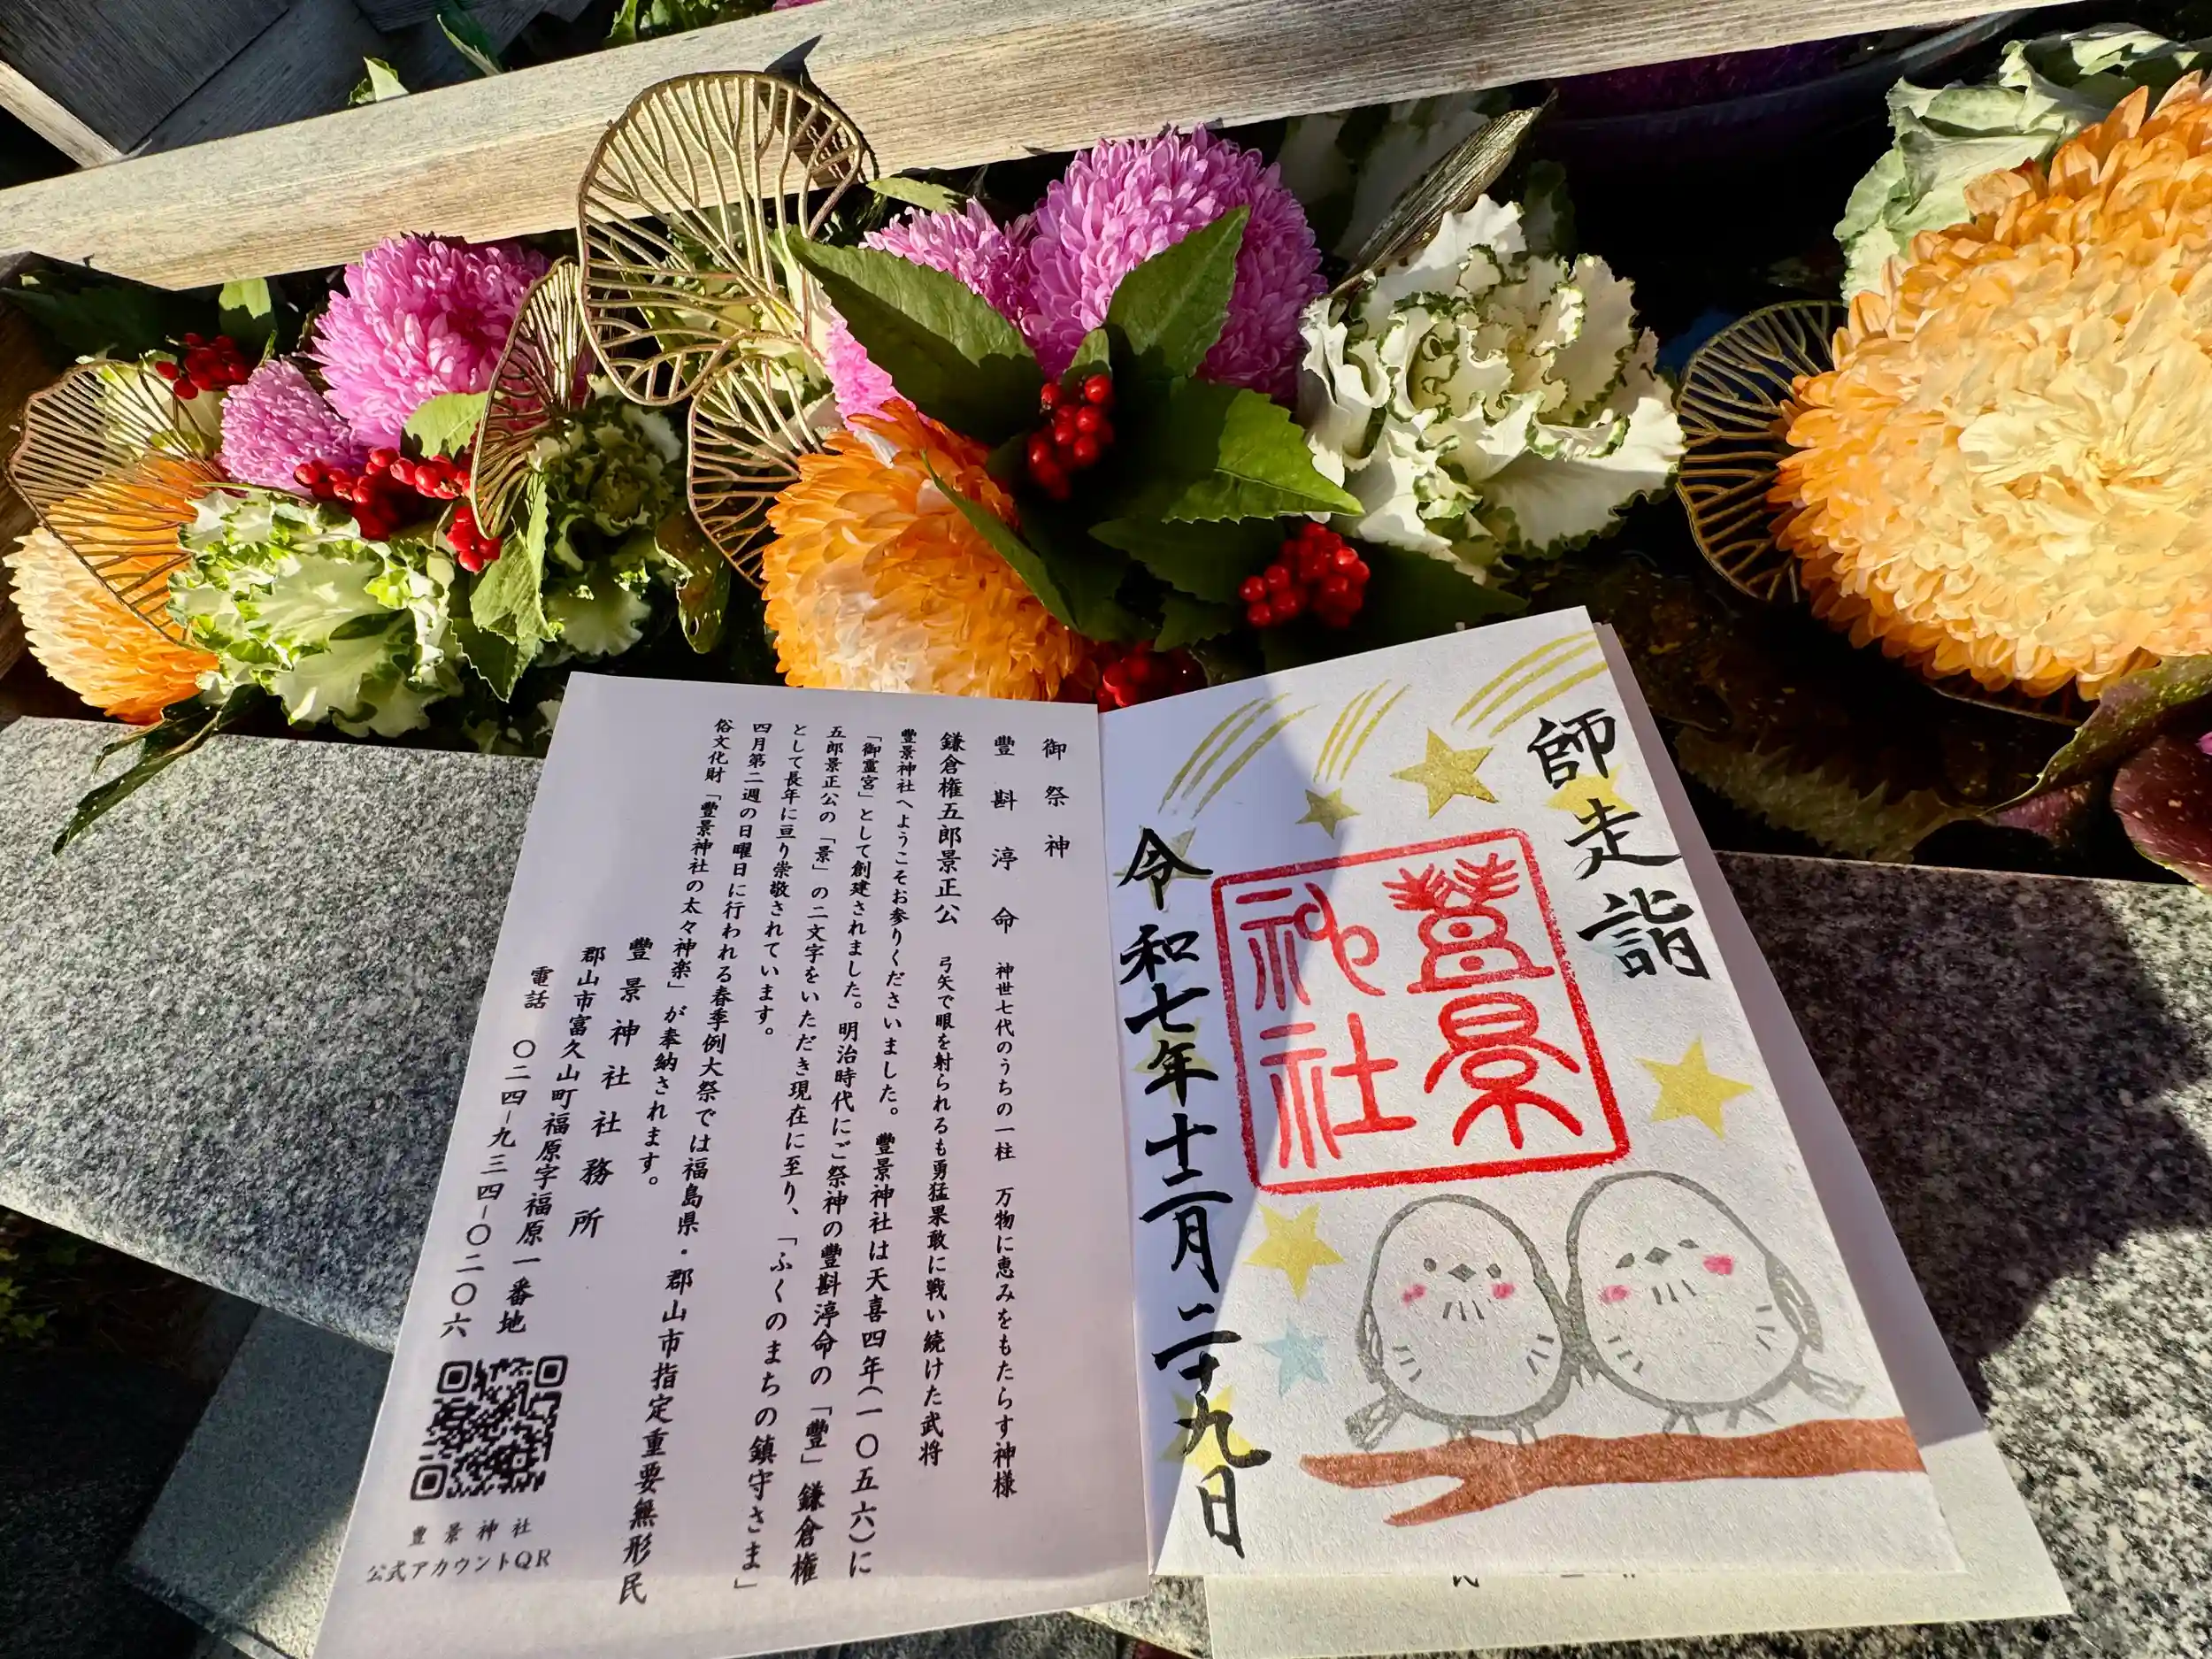 師走詣
豐景神社
令和七年十二月二十九日
御祭神
豐斟渟命 神世七代のうちの一柱 万物に恵みをもたらす神様
鎌倉権五郎景正公 弓矢で眼を射られるも勇猛果敢に戦い続けた武将
豐景神社へようこそお参りくださいました。 豐景神社は天喜四年(一〇五六)に
「御霊宮」として創建されました。明治時代にご祭神の豐斟渟命の「豐」鎌倉権
五郎景正公の「景」の二文字をいただき現在に至り、「ふくのまちの鎮守さま」
として長年に亘り崇敬されています。
四月第二週の日曜日に行われる春季例大祭では福島県・郡山市指定重要無形民
俗文化財「豐景神社の太々神楽」が奉納されます。
豐景神社社務所
郡山市富久山町福原字福原一番地
電話 〇二四-九三四-〇二〇六
豊景神社
公式アカウントQR